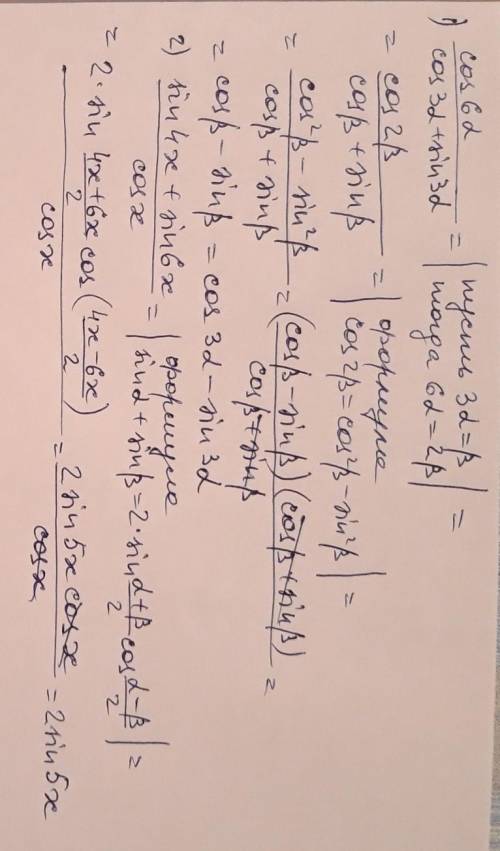 1) cos6α / (cos3α + sin3α) = | пусть 3α = β тогда 6α = 2β | =
= cos2β / (cosβ + sinβ) = | формула cos2β = cos²β − sin²β | =
= (cos²β − sin²β) / (cosβ + sinβ) = (cosβ − sinβ)(cosβ + sinβ) / (cosβ + sinβ) =
= cosβ − sinβ = cos3α − sin3α
2) (sin4x + sin6x) / cosx = | формула sinα + sinβ = 2·sin (α+β)/2 cos (α−β)/2 | =
= 2·sin (4x+6x)/2 cos((4x−6x)/2) / cosx = 2sin5x cosx / cosx = 2sin5x